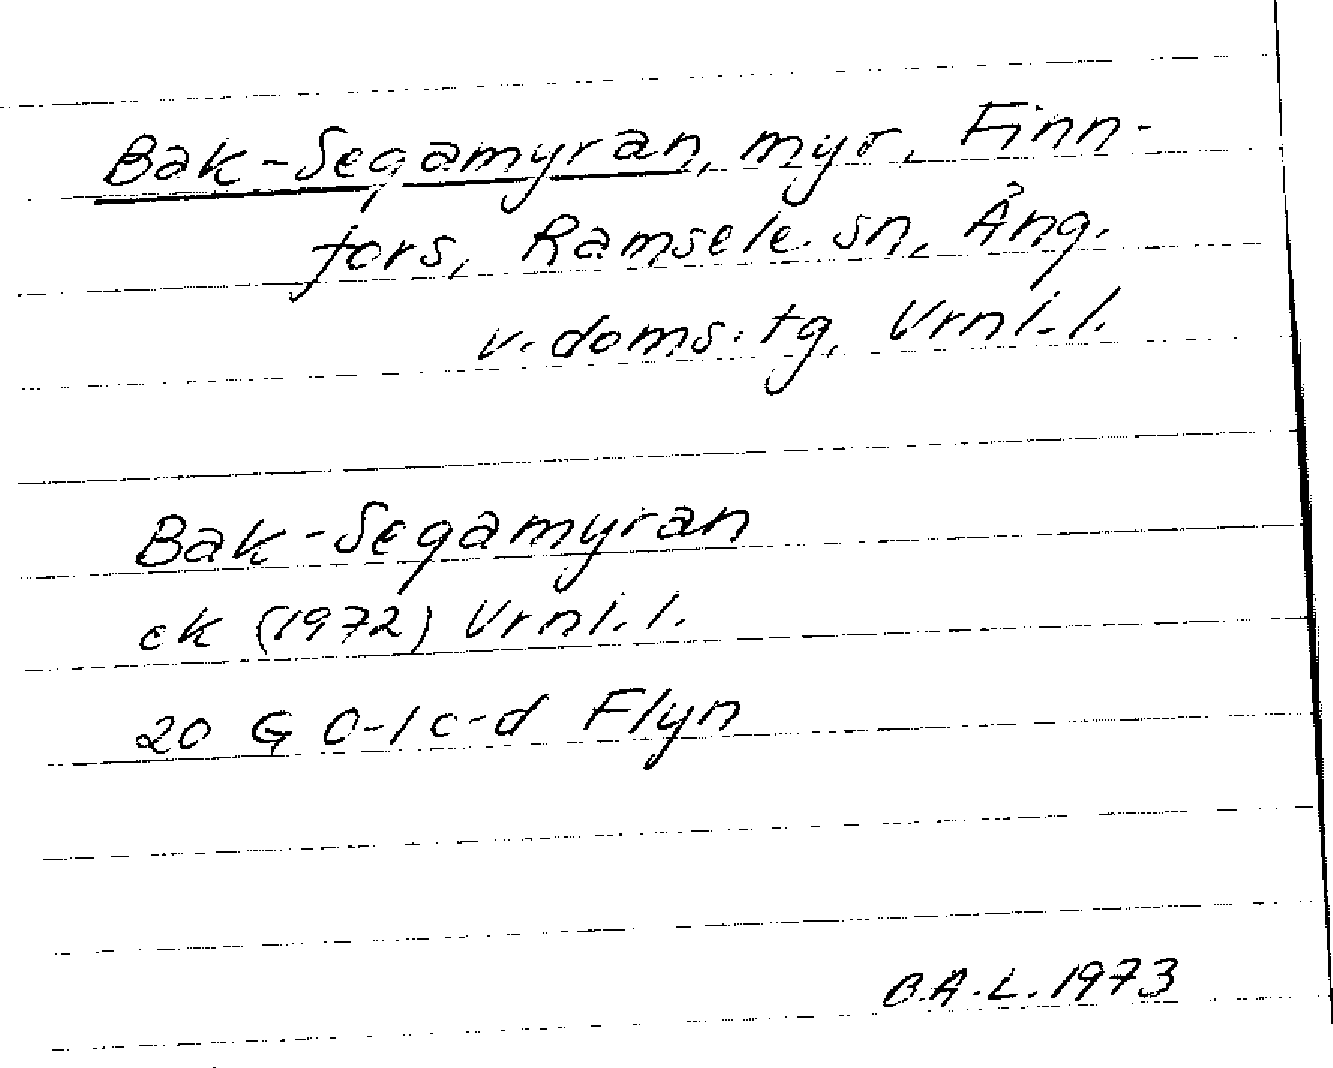 Bak-Segamyran, myr, Finn-
fors, Ramsele sn, Ång.
v. doms. tg, Vrnl. l.
Bak-Segamyran
ek (1972) Vrnl. l.
20 G 0-1 c-d Flyn
B.A.L. 1973